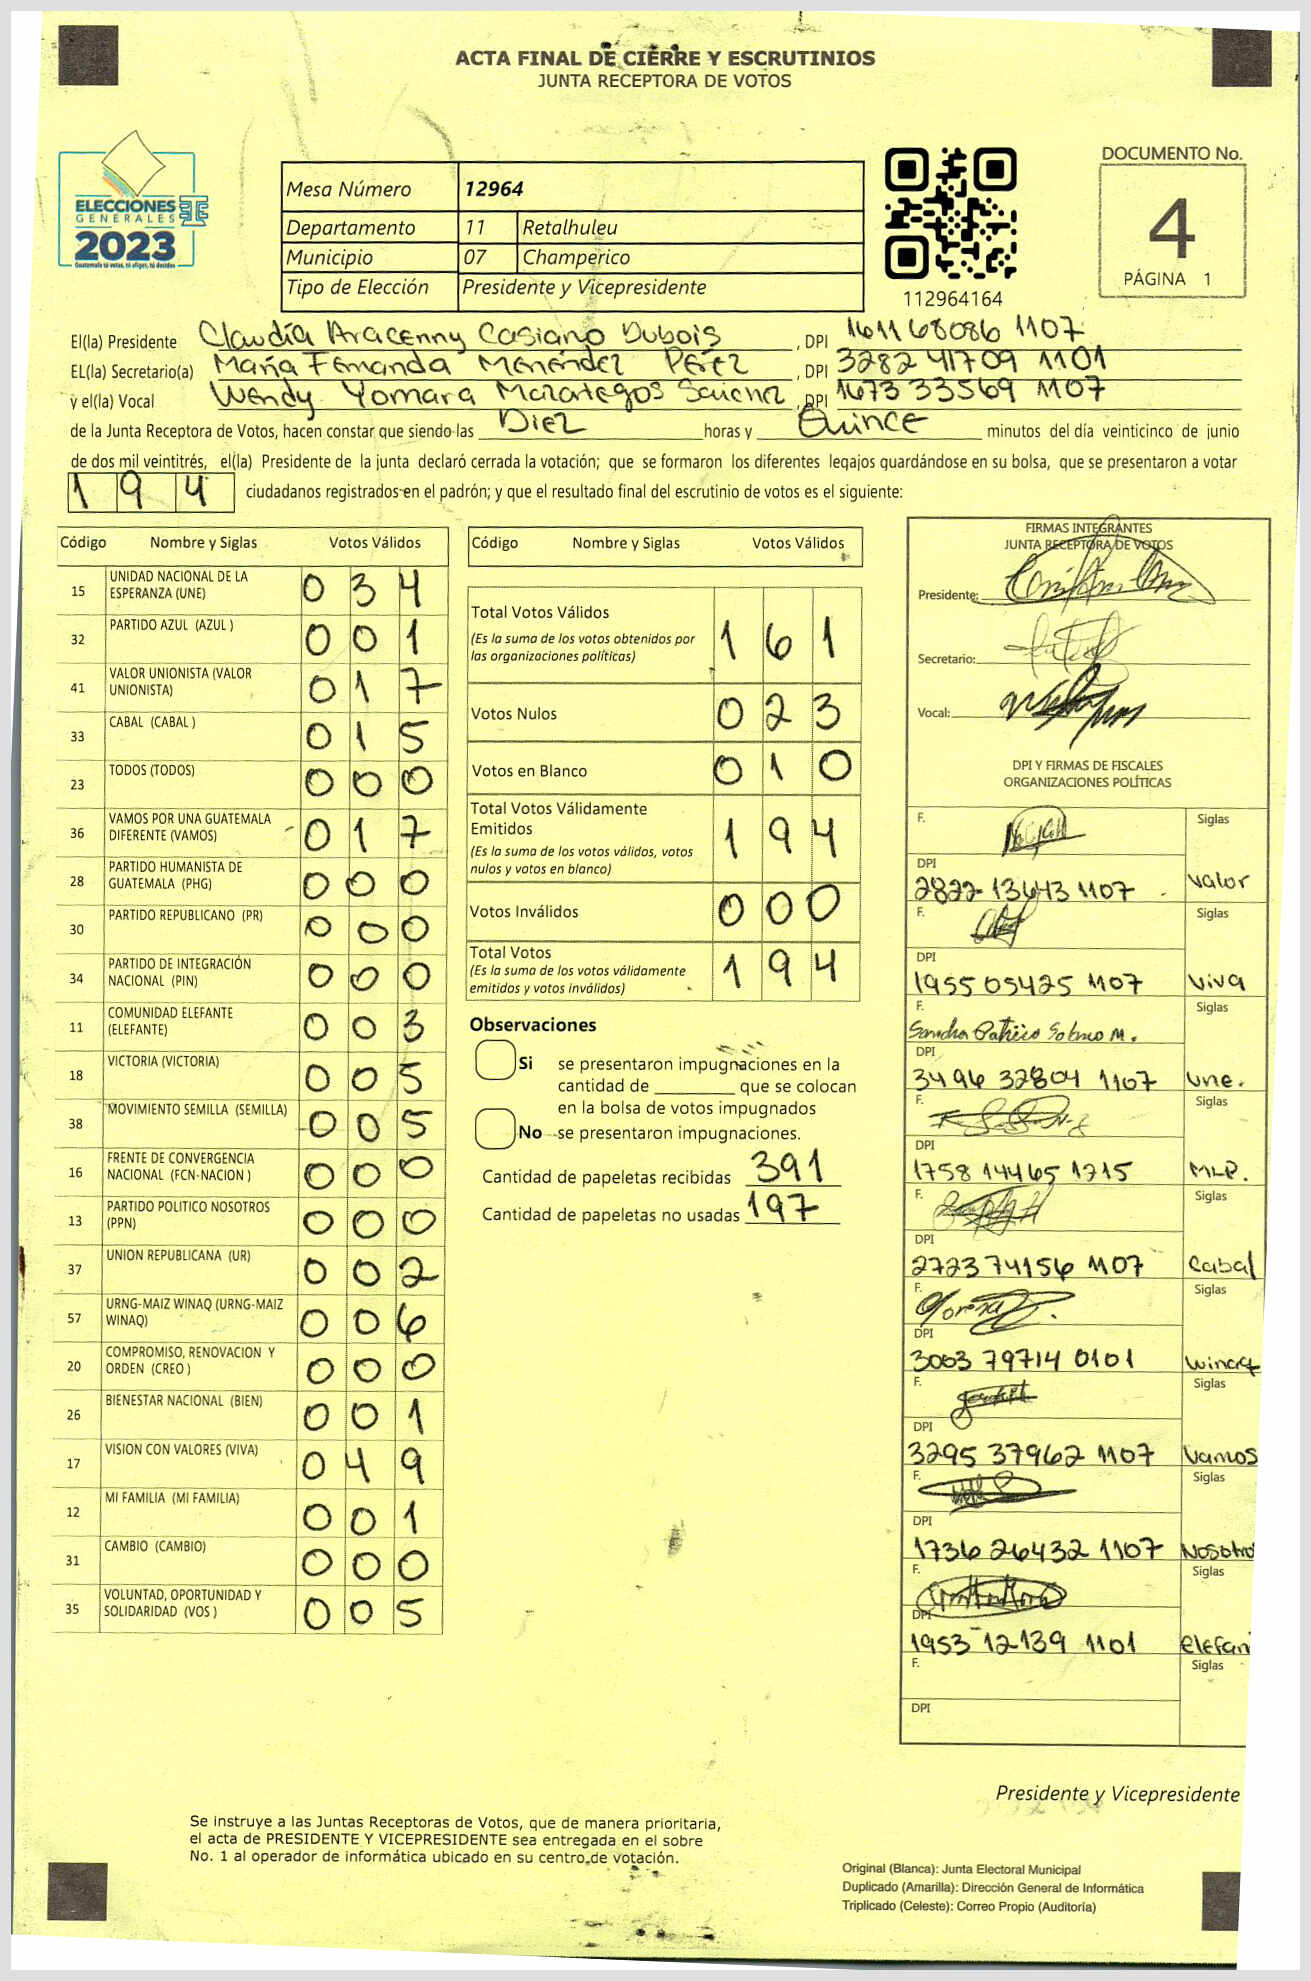 ACTA FINAL DE CIERRE Y ESCRUTINIOS
JUNTA RECEPTORA DE VOTOS
ELECCIONES
GENERALES
2023
Guatemala tú votas, tú eliges, tú decides
Mesa Número 12964
Departamento 11 Retalhuleu
Municipio 07 Champerico
Tipo de Elección Presidente y Vicepresidente
112964164
DOCUMENTO No.
4
PÁGINA 1
El(la) Presidente Claudia Aracenny Casiano Dubois, DPI 161168086 1107
EL(la) Secretario(a) María Fernanda Menéndez Pérez, DPI 3282 41709 1101
y el(la) Vocal Wendy Yomara Mazariegos, DPI 1673 33569 1107
de la Junta Receptora de Votos, hacen constar que siendo las Diez horas y Quince minutos del día veinticinco de junio
de dos mil veintitrés, el(la) Presidente de la junta declaró cerrada la votación; que se formaron los diferentes legajos guardándose en su bolsa, que se presentaron a votar
194 ciudadanos registrados en el padrón; y que el resultado final del escrutinio de votos es el siguiente:
Código Nombre y Siglas Votos Válidos
15 UNIDAD NACIONAL DE LA
ESPERANZA (UNE) 034
32 PARTIDO AZUL (AZUL ) 001
41 VALOR UNIONISTA (VALOR
UNIONISTA) 017
33 CABAL (CABAL ) 015
23 TODOS (TODOS) 000
36 VAMOS POR UNA GUATEMALA
DIFERENTE (VAMOS) 017
28 PARTIDO HUMANISTA DE
GUATEMALA (PHG) 000
30 PARTIDO REPUBLICANO (PR) 000
34 PARTIDO DE INTEGRACIÓN
NACIONAL (PIN) 000
11 COMUNIDAD ELEFANTE
(ELEFANTE) 003
18 VICTORIA (VICTORIA) 005
38 MOVIMIENTO SEMILLA (SEMILLA) 005
16 FRENTE DE CONVERGENCIA
NACIONAL (FCN-NACION ) 000
13 PARTIDO POLITICO NOSOTROS
(PPN) 000
37 UNION REPUBLICANA (UR) 002
57 URNG-MAIZ WINAQ (URNG-MAIZ
WINAQ) 006
20 COMPROMISO, RENOVACION Y
ORDEN (CREO ) 000
26 BIENESTAR NACIONAL (BIEN) 001
17 VISION CON VALORES (VIVA) 049
12 MI FAMILIA (MI FAMILIA) 001
31 CAMBIO (CAMBIO) 000
35 VOLUNTAD, OPORTUNIDAD Y
SOLIDARIDAD (VOS ) 005
Código Nombre y Siglas Votos Válidos
Total Votos Válidos 161
(Es la suma de los votos obtenidos por
las organizaciones políticas)
Votos Nulos 023
Votos en Blanco 010
Total Votos Válidamente
Emitidos 194
(Es la suma de los votos válidos, votos
nulos y votos en blanco)
Votos Inválidos 000
Total Votos 194
(Es la suma de los votos válidamente
emitidos y votos inválidos)
Observaciones
Si se presentaron impugnaciones en la
cantidad de ________ que se colocan
en la bolsa de votos impugnados
No se presentaron impugnaciones.
Cantidad de papeletas recibidas 391
Cantidad de papeletas no usadas 197
FIRMAS INTEGRANTES
JUNTA RECEPTORA DE VOTOS
Presidente:
Secretario:
Vocal:
DPI Y FIRMAS DE FISCALES
ORGANIZACIONES POLÍTICAS
F. Siglas
DPI
2822 13643 1107 Valor
F. Siglas
DPI
1955 05425 1107 Viva
F. Siglas
DPI
3496 32804 1107 une.
F. Siglas
DPI
1758 14465 1215 MLP.
F. Siglas
DPI
2723 74156 1107 Cabal
F. Siglas
DPI
3003 79714 0101 Winaq
F. Siglas
DPI
3295 37962 1107 Vamos
F. Siglas
DPI
1736 26432 1107 Nosotro
F. Siglas
DPI
1953 12139 1101 elefan
F. Siglas
DPI
Presidente y Vicepresidente
Se instruye a las Juntas Receptoras de Votos, que de manera prioritaria,
el acta de PRESIDENTE Y VICEPRESIDENTE sea entregada en el sobre
No. 1 al operador de informática ubicado en su centro de votación.
Original (Blanca): Junta Electoral Municipal
Duplicado (Amarilla): Dirección General de Informática
Triplicado (Celeste): Correo Propio (Auditoría)